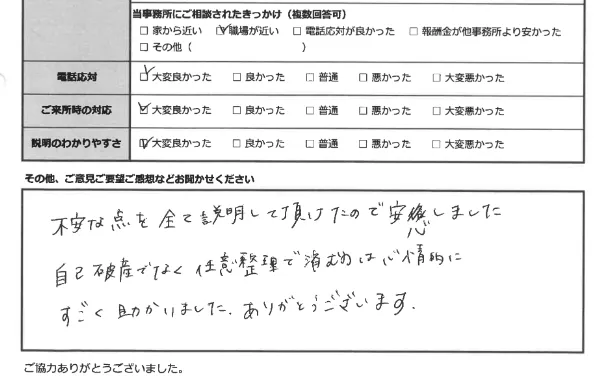 当事務所にご相談されたきっかけ（複数回答可）
□ 家から近い ☑ 職場が近い □ 電話応対が良かった □ 報酬金が他事務所より安かった
□ その他（ ）
電話応対 ☑ 大変良かった □ 良かった □ 普通 □ 悪かった □ 大変悪かった
ご来所時の対応 ☑ 大変良かった □ 良かった □ 普通 □ 悪かった □ 大変悪かった
説明のわかりやすさ ☑ 大変良かった □ 良かった □ 普通 □ 悪かった □ 大変悪かった
その他、ご意見ご要望ご感想などお聞かせください
不安な点を全て説明して頂けたので安心しました
自己破産でなく任意整理で済むのは心情的に
すごく助かりました。ありがとうございます。
ご協力ありがとうございました。